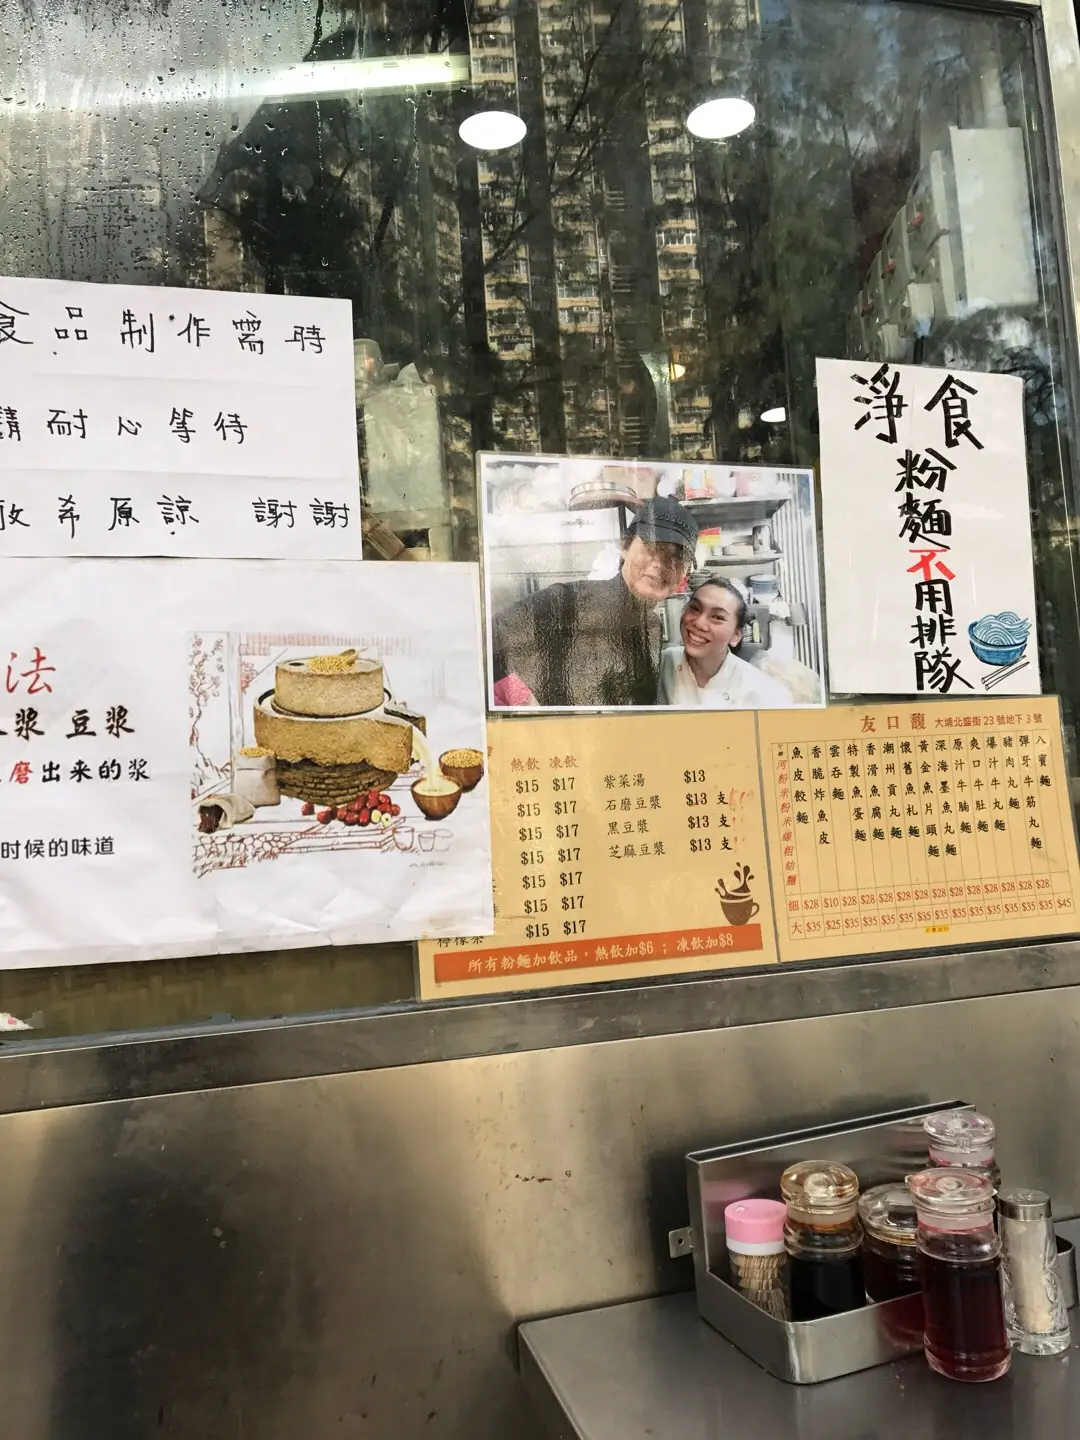 食品制作需時
請耐心等待
敬希原諒 謝謝
法
浆 豆浆
磨出来的浆
时候的味道
淨食
粉麵不用排隊
熱飲 凍飲
$15 $17
$15 $17
$15 $17
$15 $17
$15 $17
$15 $17
檸檬茶 $15 $17
紫菜湯 $13
石磨豆漿 $13 支
黑豆漿 $13 支
芝麻豆漿 $13 支
所有粉麵加飲品，熱飲加$6；凍飲加$8
友口馥 大埔北盛街23號地下3號
八寶麵
彈牙牛筋丸麵
豬肉丸麵
爆汁牛丸麵
爽口牛肚麵
原汁牛腩麵
深海墨魚丸麵
黃金魚片頭麵
懷舊魚札麵
潮州貢丸麵
香滑魚腐麵
特製魚蛋麵
雲吞麵
香脆炸魚皮
魚皮餃麵
細 $28 $10 $28 $28 $28 $28 $28 $28 $28 $28 $28 $28 $28 $28
大 $35 $25 $35 $35 $35 $35 $35 $35 $35 $35 $35 $35 $35 $35 $45